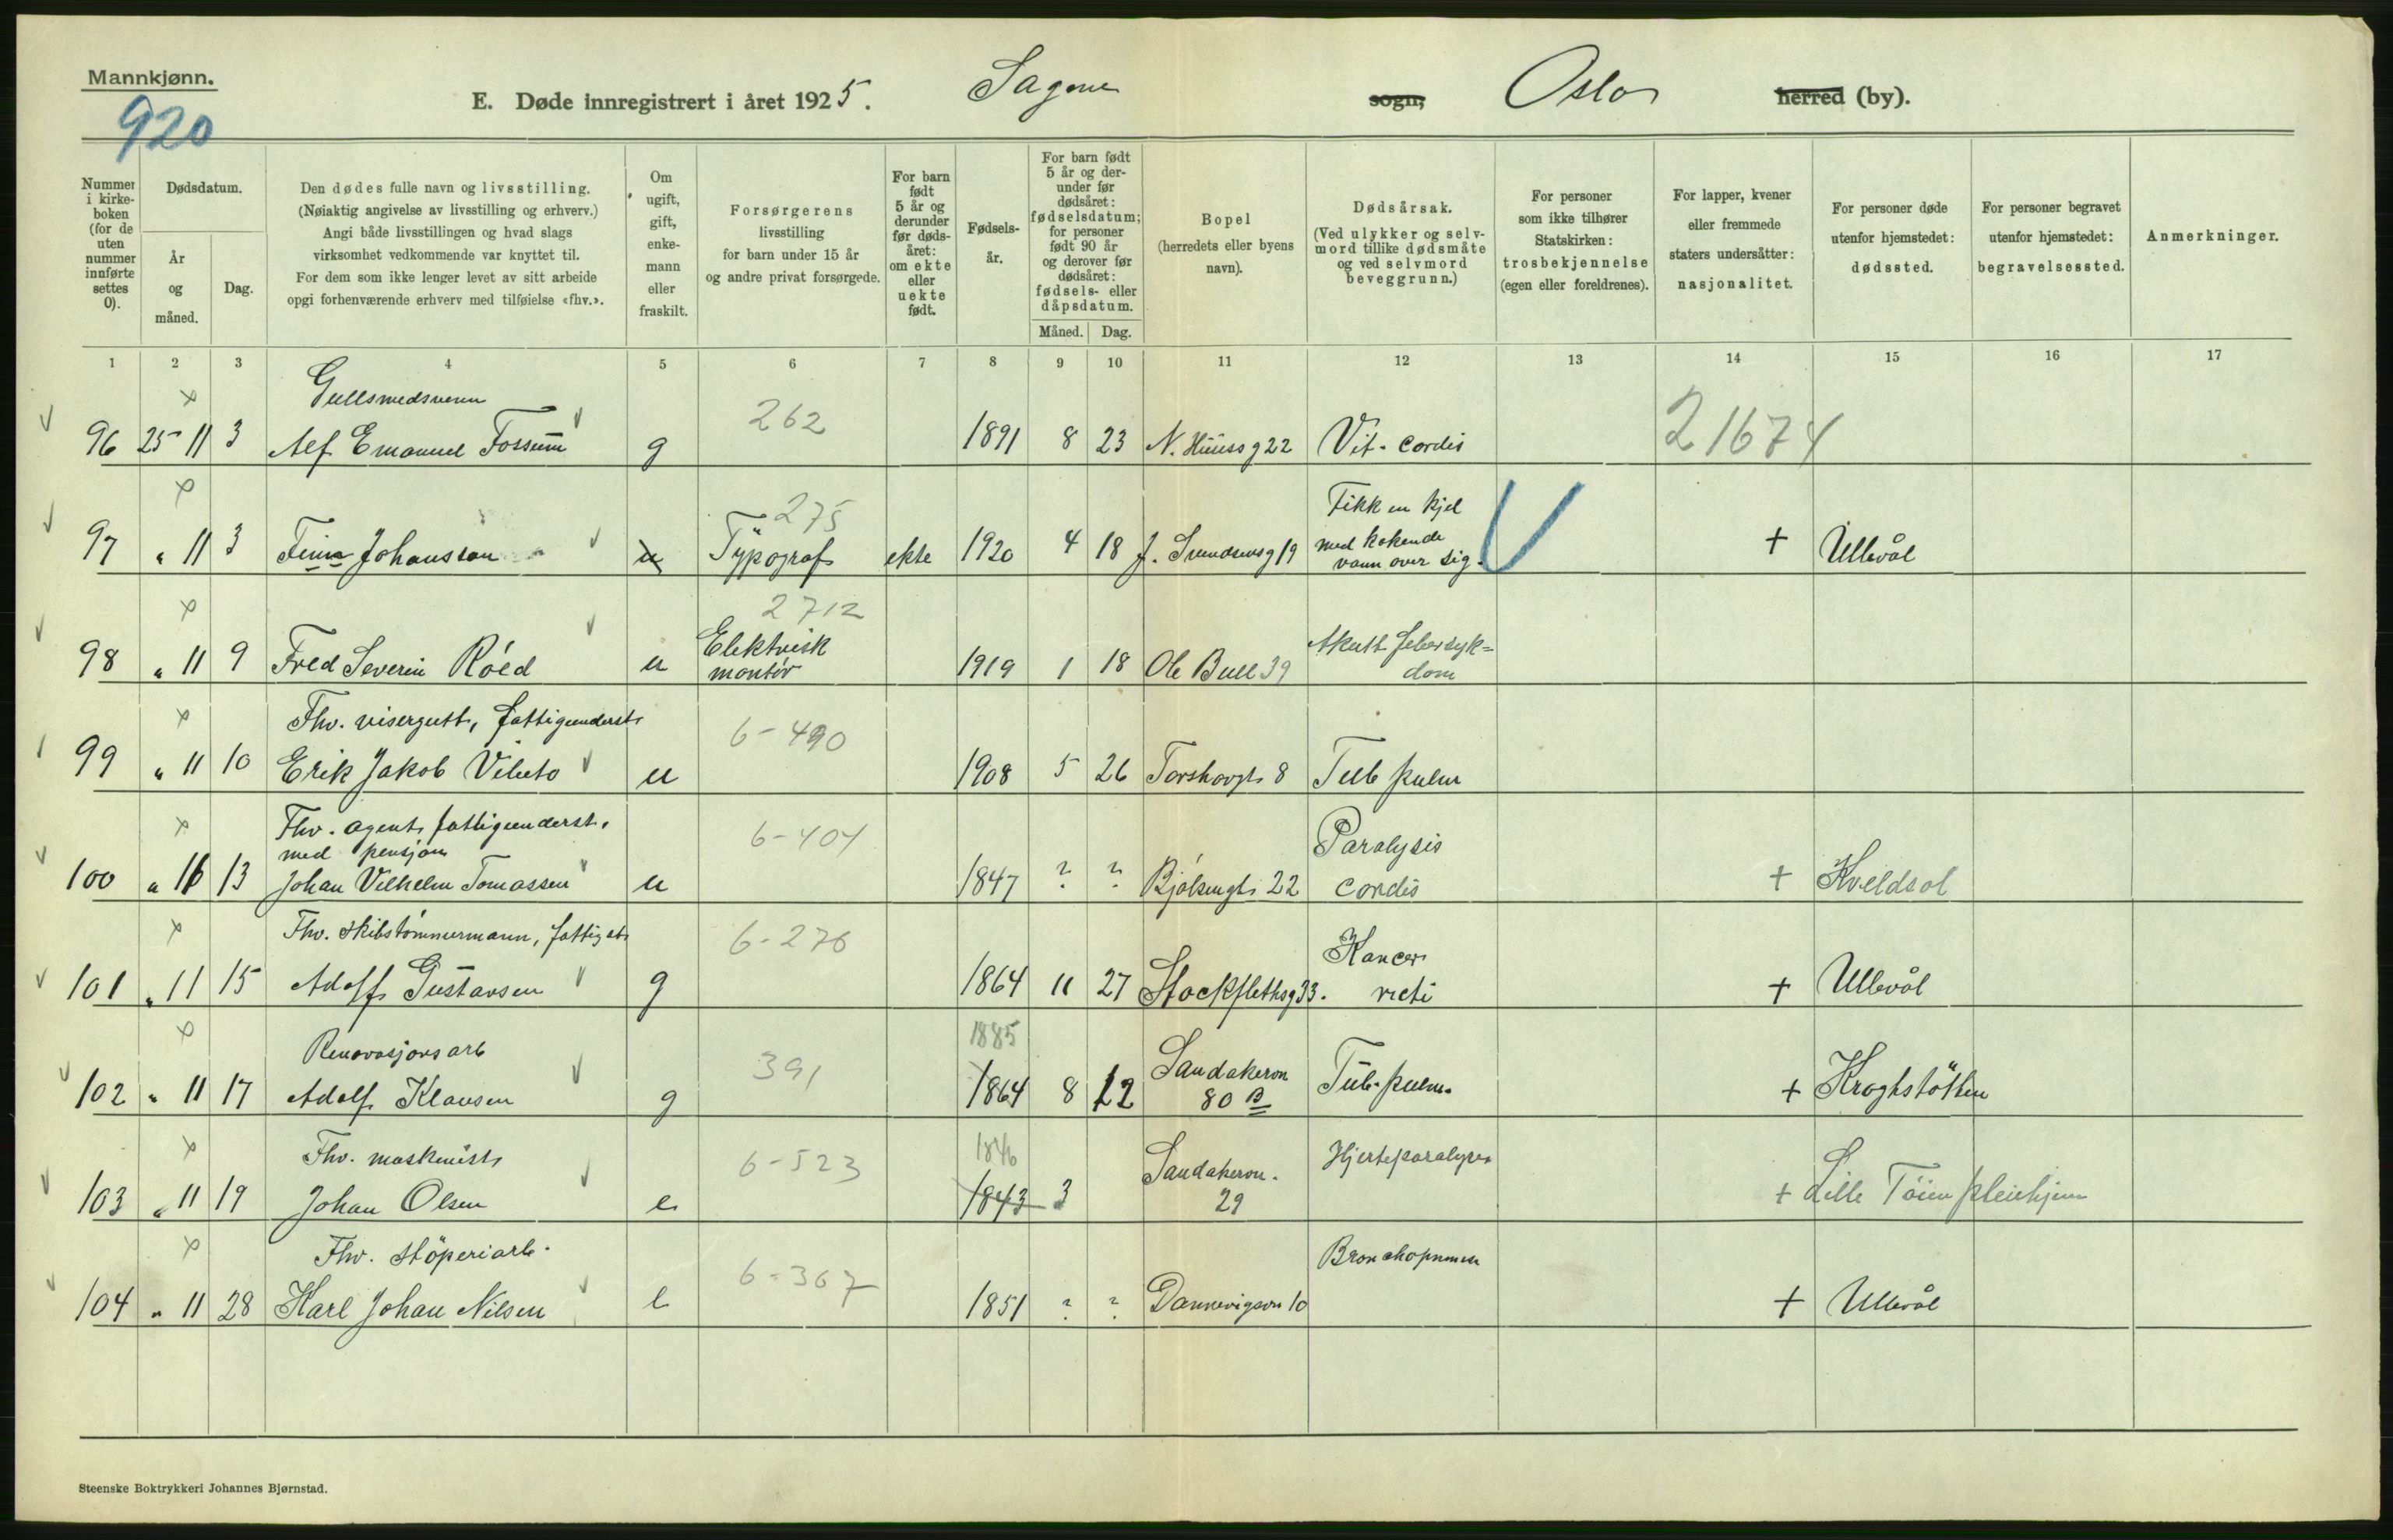 Mannkjønn.
920
E. Døde innregistrert i året 1925. Sagene sogn, Oslo herred (by).
Nummer i kirkeboken (for de uten nummer innførte settes 0).
Dødsdatum.
År og måned.
Dag.
Den dødes fulle navn og livsstilling.
(Nøiaktig angivelse av livsstilling og erhverv.)
Angi både livsstillingen og hvad slags
virksomhet vedkommende var knyttet til.
For dem som ikke lenger levet av sitt arbeide
opgi forhenværende erhverv med tilføielse «fhv.».
Om ugift, gift, enkemann eller fraskilt.
Forsørgerens
livsstilling
for barn under 15 år
og andre privat forsørgede.
For barn født 5 år og derunder før dødsåret: om ekte eller uekte født.
Fødselsår.
For barn født 5 år og derunder før dødsåret: fødselsdatum; for personer født 90 år og derover før dødsåret: fødsels- eller dåpsdatum.
Måned. Dag.
Bopel
(herredets eller byens navn).
Dødsårsak.
(Ved ulykker og selvmord tillike dødsmåte og ved selvmord beveggrunn.)
For personer
som ikke tilhører
Statskirken:
trosbekjennelse
(egen eller foreldrenes).
For lapper, kvener
eller fremmede
staters undersåtter:
nasjonalitet.
For personer døde
utenfor hjemstedet:
dødssted.
For personer begravet
utenfor hjemstedet:
begravelsessted.
Anmerkninger.
1 2 3 4 5 6 7 8 9 10 11 12 13 14 15 16 17
Gullsmedsvenn
96 25 11 3 Alf Emanuel Fossum g 262 1891 8 23 N. Huusg 22 Vit. cordis 21674
275
Fikk en kjel
97 " 11 3 Finn Johansson u Typograf ekte 1920 4 18 J. Svendsensg 19 med kokende + Ullevål
vann over sig.
2712
98 " 11 9 Fred Severin Röed u Elektrisk montör 1919 1 18 Ole Bull 39 Akutt febersyk=
dom
Fhv. visergutt, fattigunderst.
99 " 11 10 Erik Jakob u 6-490 1908 5 26 Torshovgt. 8 Tub pulm
Fhv. agent, fattigunderst.
med pensjon
100 " 11 13 Johan Vilhelm Tomassen u 6-404 1847 ? ? Bjölsengt. 22 Paralysis cordis + Kveldsol
Fhv. skibstömmermann,
101 " 11 15 Adolf Gustavsen g 6-276 1864 11 27 Stockflethsg 33. Kancer recti + Ullevål
Renovasjonsarb 1885
102 " 11 17 Adolf Klausen g 391 1864 8 12 Sandakervn 80 B Tub. pulm. + Kroghstötten
Fhv. maskinist 1846
103 " 11 19 Johan Olsen e 6-523 1843 3 Sandakervn. 29 Hjerteparalyse + Lille Töien pleiehjem
Fhv. stöperiarb.
104 " 11 28 Karl Johan Nilsen e 6-367 1851 ? ? Dannevigsvn 10 Bronchopneum + Ullevål
Steenske Boktrykkeri Johannes Bjørnstad.